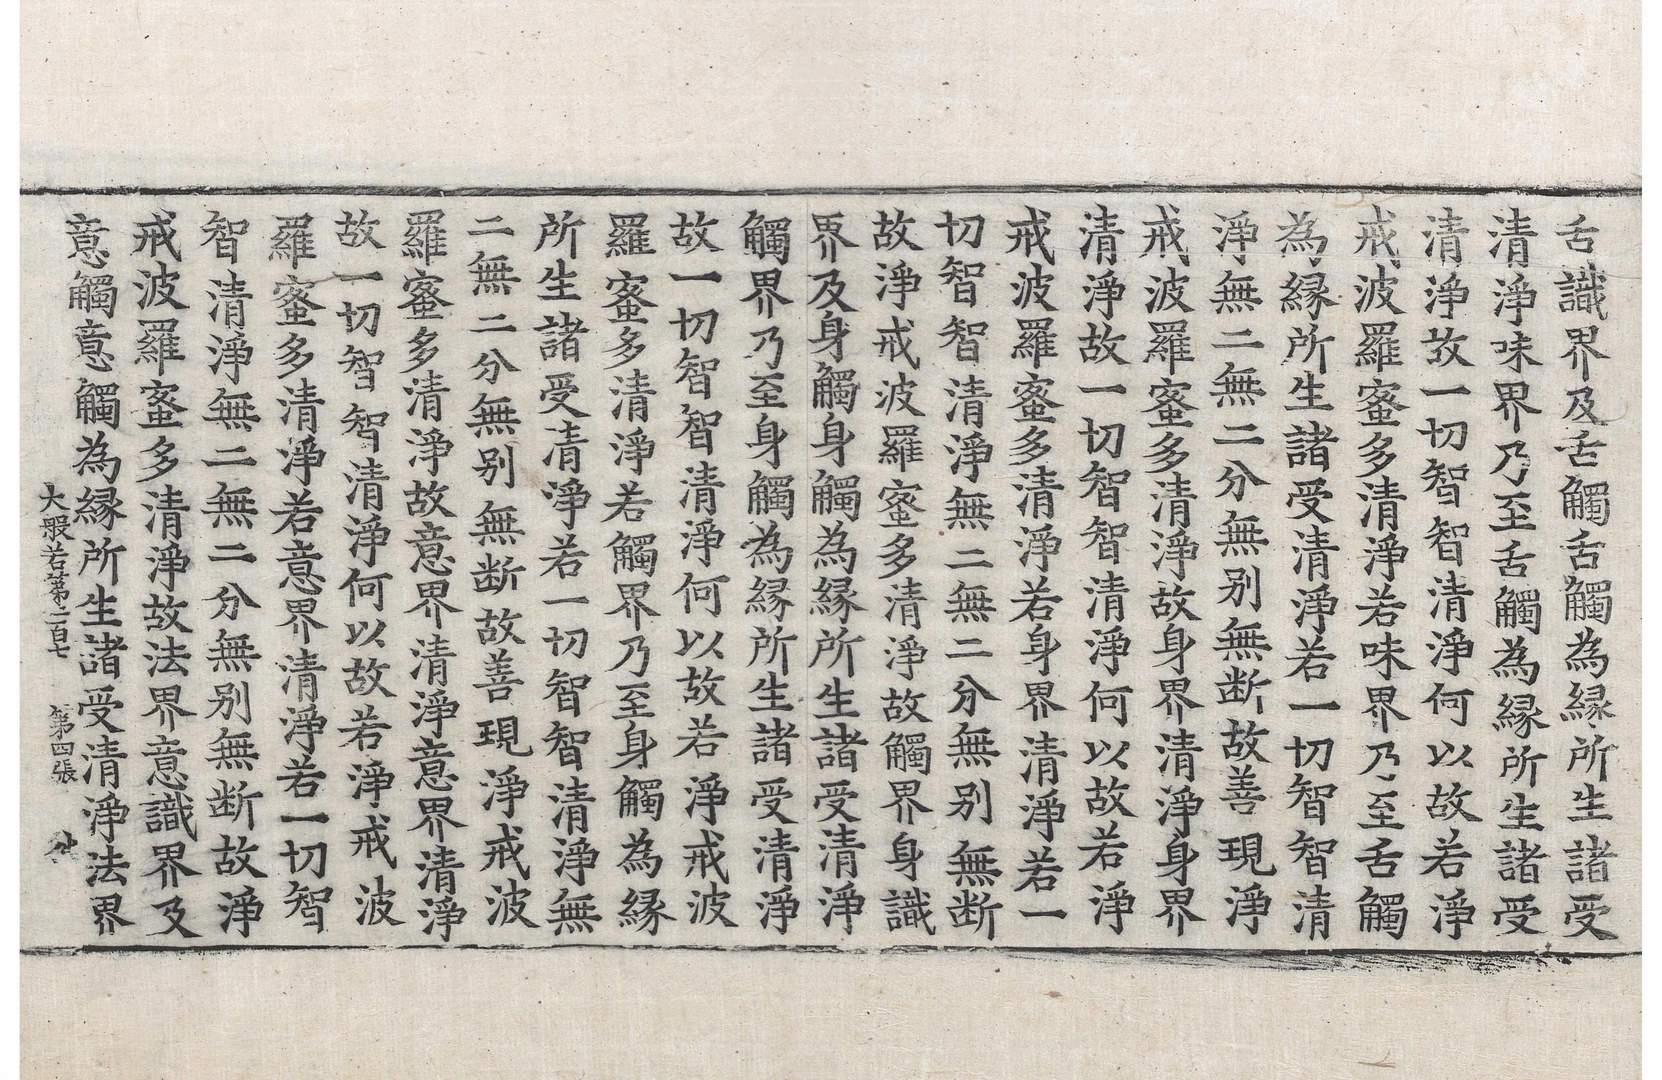 舌識界及舌觸舌觸為縁所生諸受
清淨味界乃至舌觸為縁所生諸受
清淨故一切智智清淨何以故若淨
戒波羅蜜多清淨若味界乃至舌觸
為縁所生諸受清淨若一切智智清
淨無二無二分無别無断故善現淨
戒波羅蜜多清淨故身界清淨身界
清淨故一切智智清淨何以故若淨
戒波羅蜜多清淨若身界清淨若一
切智智清淨無二無二分無别無断
故淨戒波羅蜜多清淨故觸界身識
界及身觸身觸為縁所生諸受清淨
觸界乃至身觸為縁所生諸受清淨
故一切智智清淨何以故若淨戒波
羅蜜多清淨若觸界乃至身觸為縁
所生諸受清淨若一切智智清淨無
二無二分無别無断故善現淨戒波
羅蜜多清淨故意界清淨意界清淨
故一切智智清淨何以故若淨戒波
羅蜜多清淨若意界清淨若一切智
智清淨無二無二分無别無断故淨
戒波羅蜜多清淨故法界意識界及
意觸意觸為縁所生諸受清淨法界
大般若第二百七 第四張